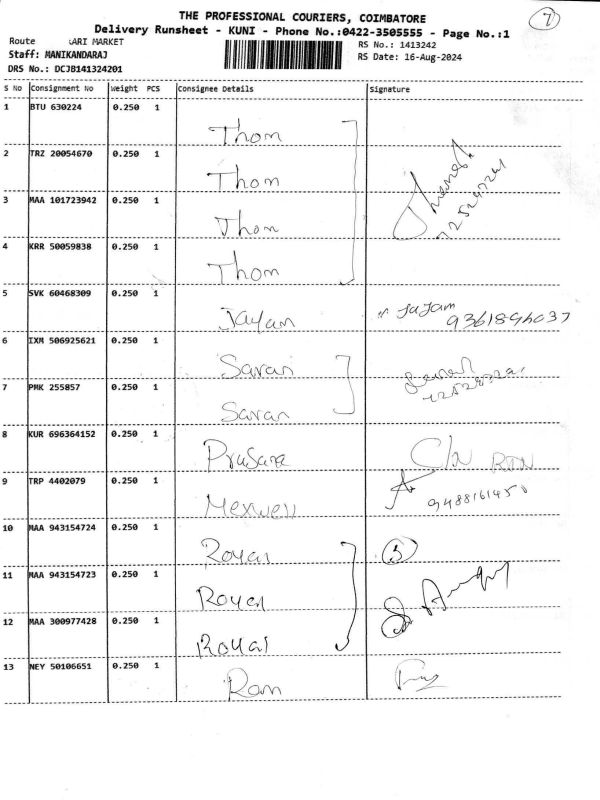 7
THE PROFESSIONAL COURIERS, COIMBATORE
Delivery Runsheet - KUNI - Phone No.:0422-3505555 - Page No.:1
Route KARI MARKET
RS No.: 1413242
Staff: MANIKANDARAJ
RS Date: 16-Aug-2024
DRS No.: DCJB141324201
S No Consignment No Weight PCS Consignee Details Signature
1 BTU 630224 0.250 1 Thom
2 TRZ 20054670 0.250 1 Thom
3 MAA 101723942 0.250 1 Thom
4 KRR 50059838 0.250 1 Thom
5 SVK 60468309 0.250 1 Jayam Jajam
6 IXM 506925621 0.250 1 Saran
7 PMK 255857 0.250 1 Saran
8 KUR 696364152 0.250 1 Prusara C/N RTN
9 TRP 4402079 0.250 1 Mexwell 9488161450
10 MAA 943154724 0.250 1 Royal
11 MAA 943154723 0.250 1 Royal
12 MAA 300977428 0.250 1 Royal
13 NEY 50106651 0.250 1 Ram